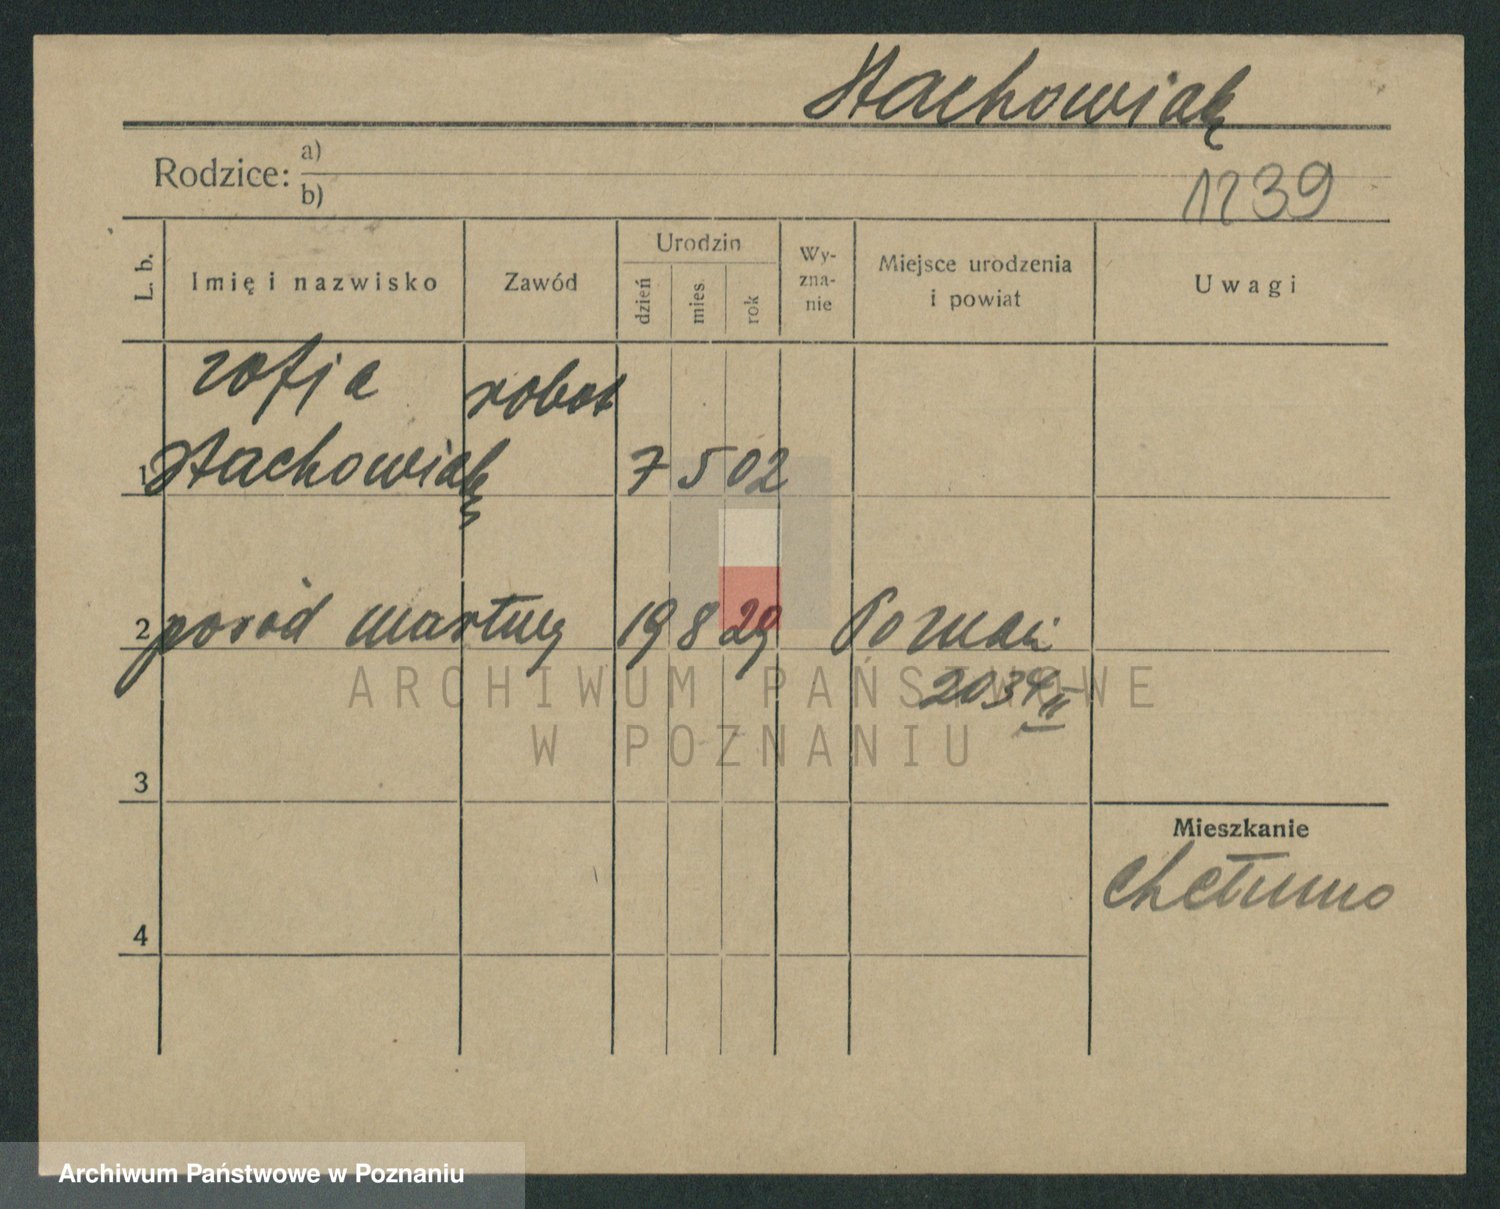 Stachowiak
Rodzice: a)
b)
1239
L. b. Imię i nazwisko Zawód Urodzin dzień mies. rok Wy-zna-nie Miejsce urodzenia i powiat Uwagi
zofja robot
1 Stachowiak 7 5 02
2 poród martwy 19 8 29 Poznań
2034 II
ARCHIWUM PAŃSTWOWE
W POZNANIU
3
Mieszkanie
Chełmno
4
Archiwum Państwowe w Poznaniu